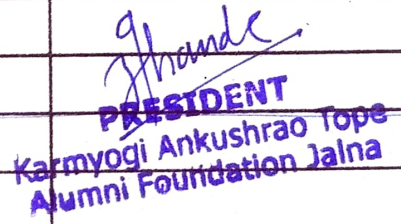 PRESIDENT
Karmyogi Ankushrao Tope
Alumni Foundation Jalna